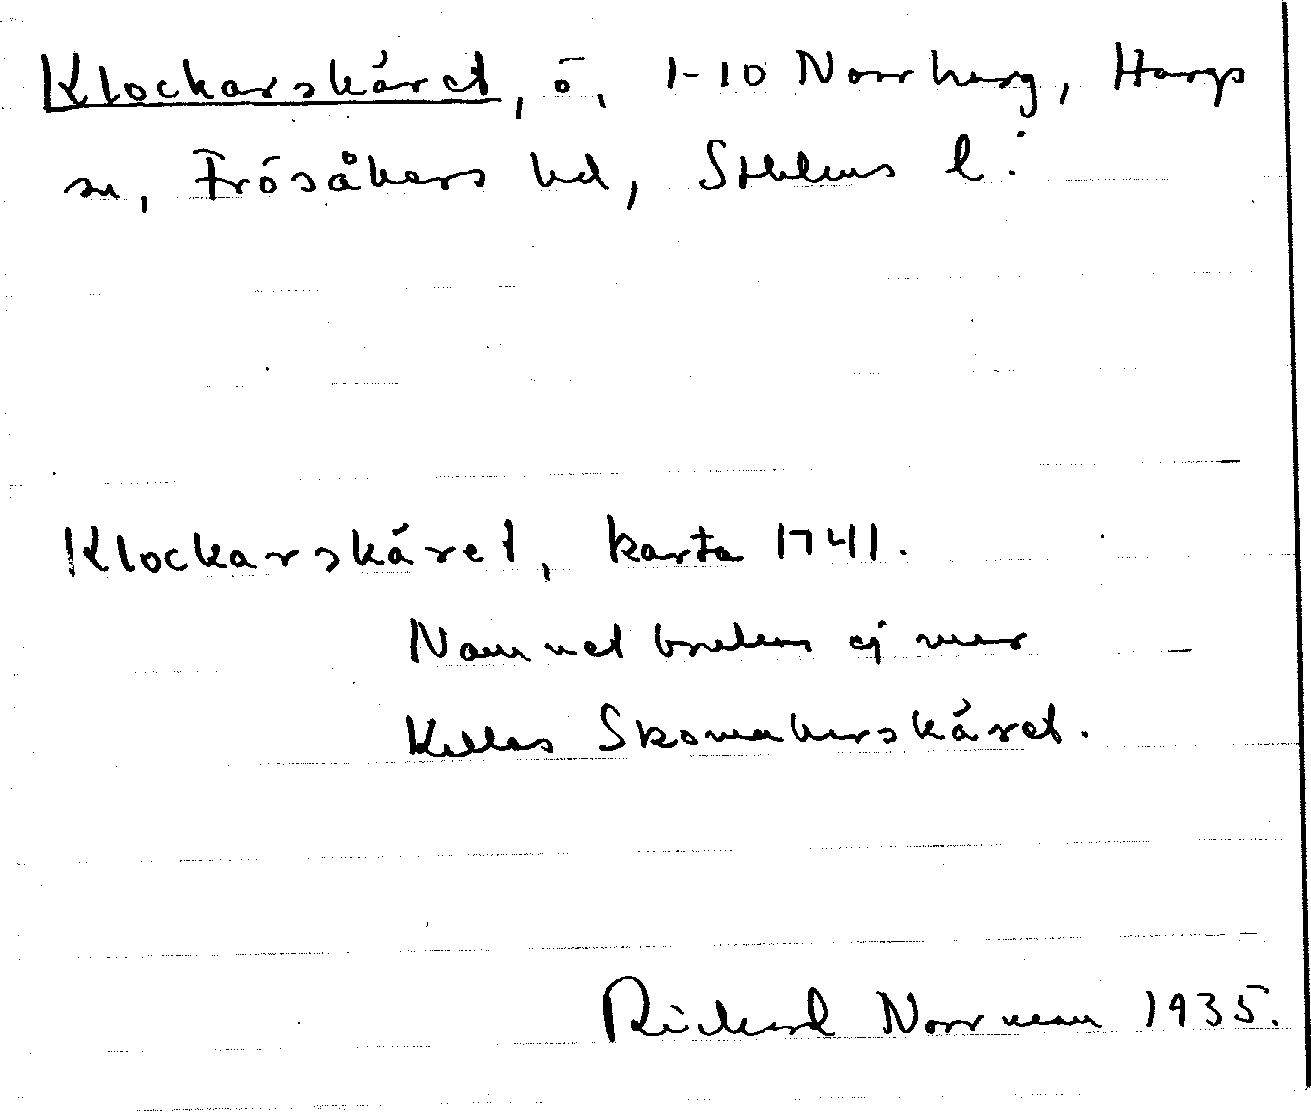 Klockarskäret, ö, 1-10 Norrharg, Hargs
sn, Frösåkers hd, Sthlms l.
Klockarskäret, karta 1741.
Namnet brukas ej mer
Kallas Skomakarskäret.
Rickard Norrman 1935.